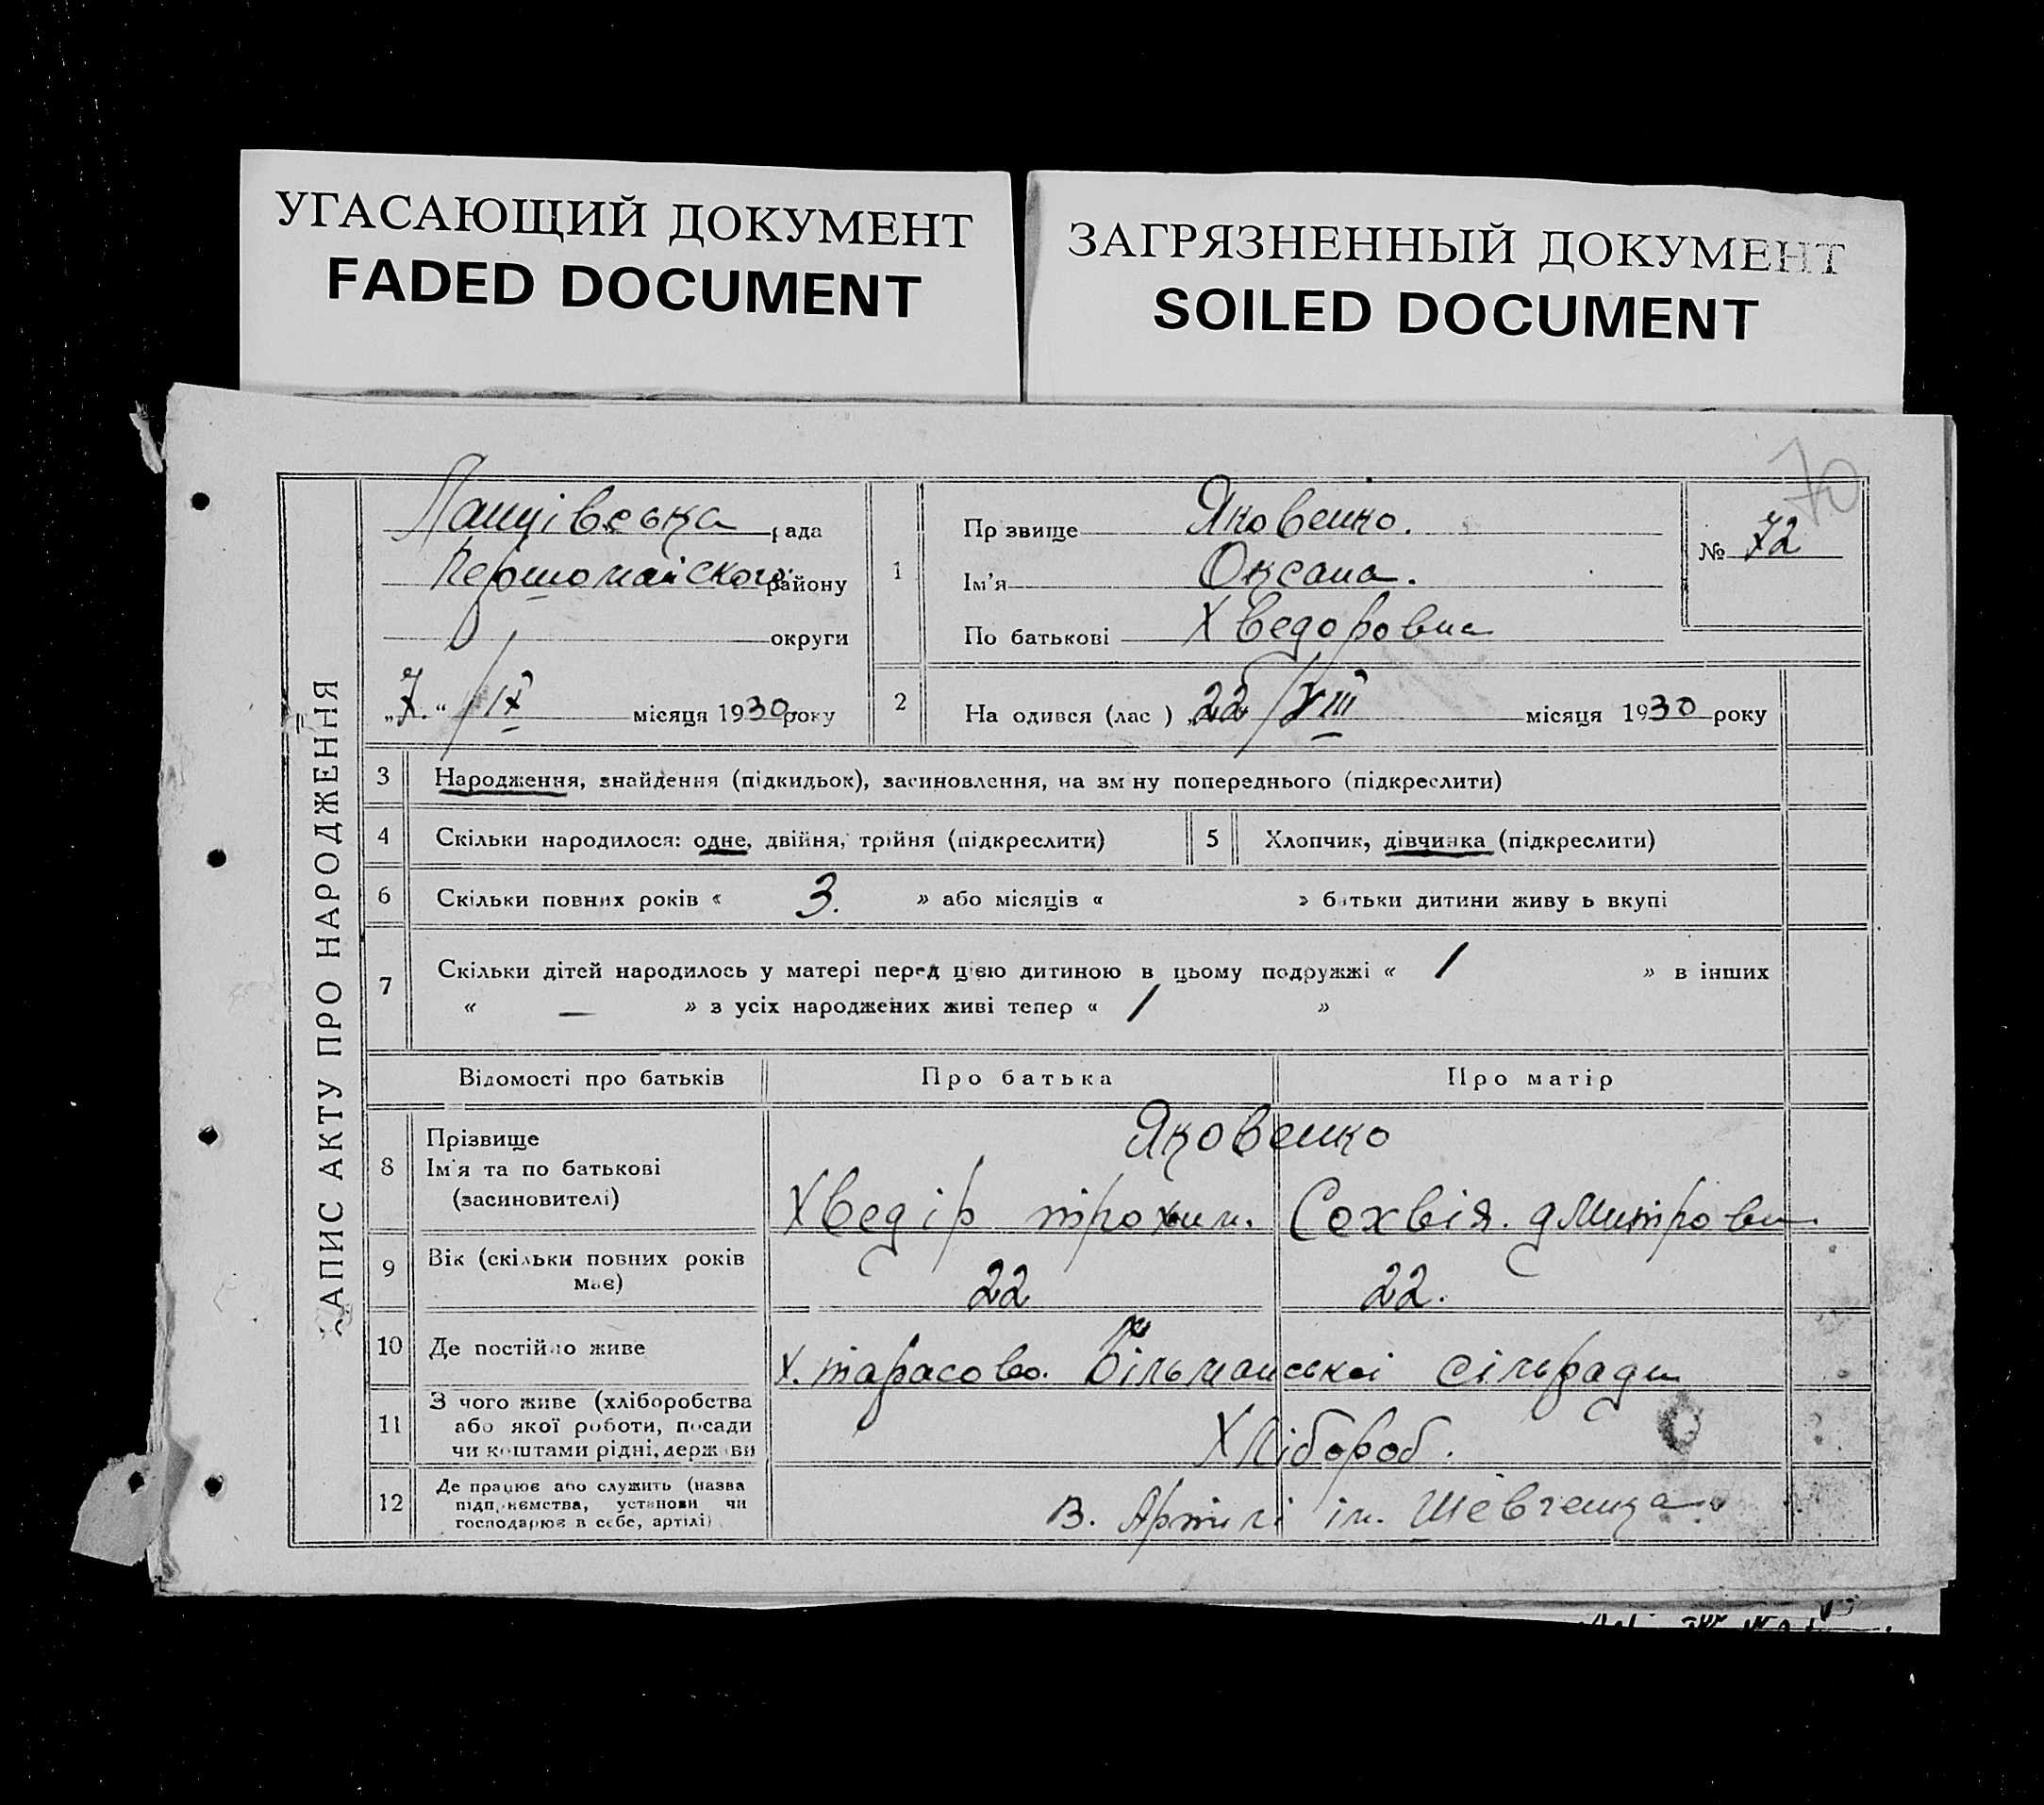 УГАСАЮЩИЙ ДОКУМЕНТ
FADED DOCUMENT
ЗАГРЯЗНЕННЫЙ ДОКУМЕНТ
SOILED DOCUMENT
70
ЗАПИС АКТУ ПРО НАРОДЖЕННЯ
рада
Першомайского району
округи
„7.“ / IX місяця 1930 року
1
Прзвище Яковенко.
Ім'я Оксана.
По батькові Хведоровна
№ 72
2 На одився (лас ) 22/VIII місяця 1930 року
3 Народження, знайдення (підкидьок), засиновлення, на зм ну попереднього (підкреслити)
4 Скільки народилося: одне, двійня, трійня (підкреслити)
5 Хлопчик, дівчинка (підкреслити)
6 Скільки повних років « 3. » або місяців « » батьки дитини живу ь вкупі
7 Скільки дітей народилось у матері перед цією дитиною в цьому подружжі « 1 » в інших
« — » з усіх народжених живі тепер « 1 »
Відомості про батьків Про батька Про матір
8 Прізвище
Ім'я та по батькові
(засиновителі)
Яковенко
Хведір трохим. Сохвія. дмитровн
9 Вік (скільки повних років
має)
22 22.
10 Де постійно живе х. тарасово. Більманської сільради
11 З чого живе (хліборобства
або якої роботи, посади
чи коштами рідні, держави
Хлібороб.
12 Де працює або служить (назва
підприємства, установи чи
господарює в себе, артілі)
В. Артилі ім. Шевченка